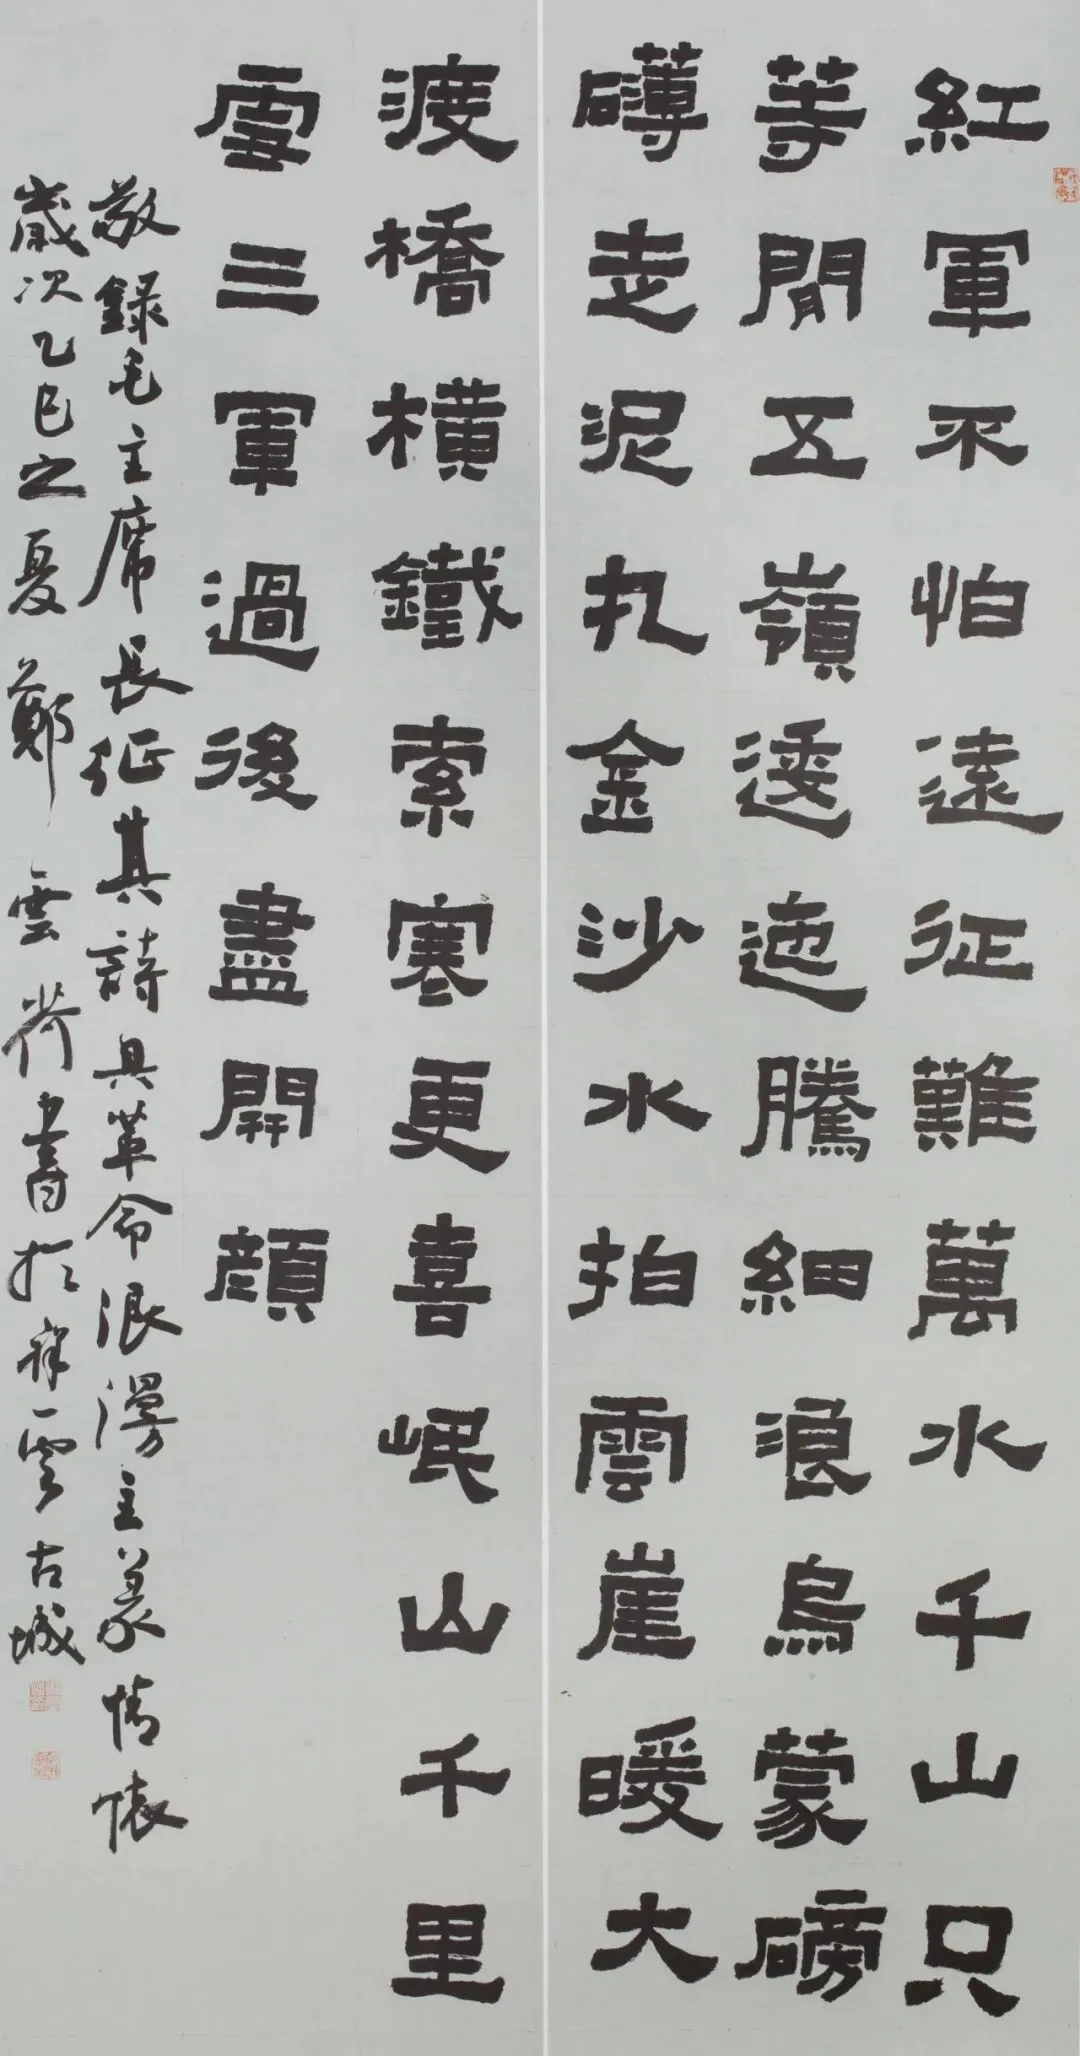 紅軍不怕遠征難萬水千山只
等閒五嶺逶迤騰細浪烏蒙磅
礴走泥丸金沙水拍雲崖暖大
渡橋橫鐵索寒更喜岷山千里
雪三軍過後盡開顏
敬錄毛主席長征其詩具革命浪漫主義情懷
歲次乙巳之夏鄭雲書於祥雲古城